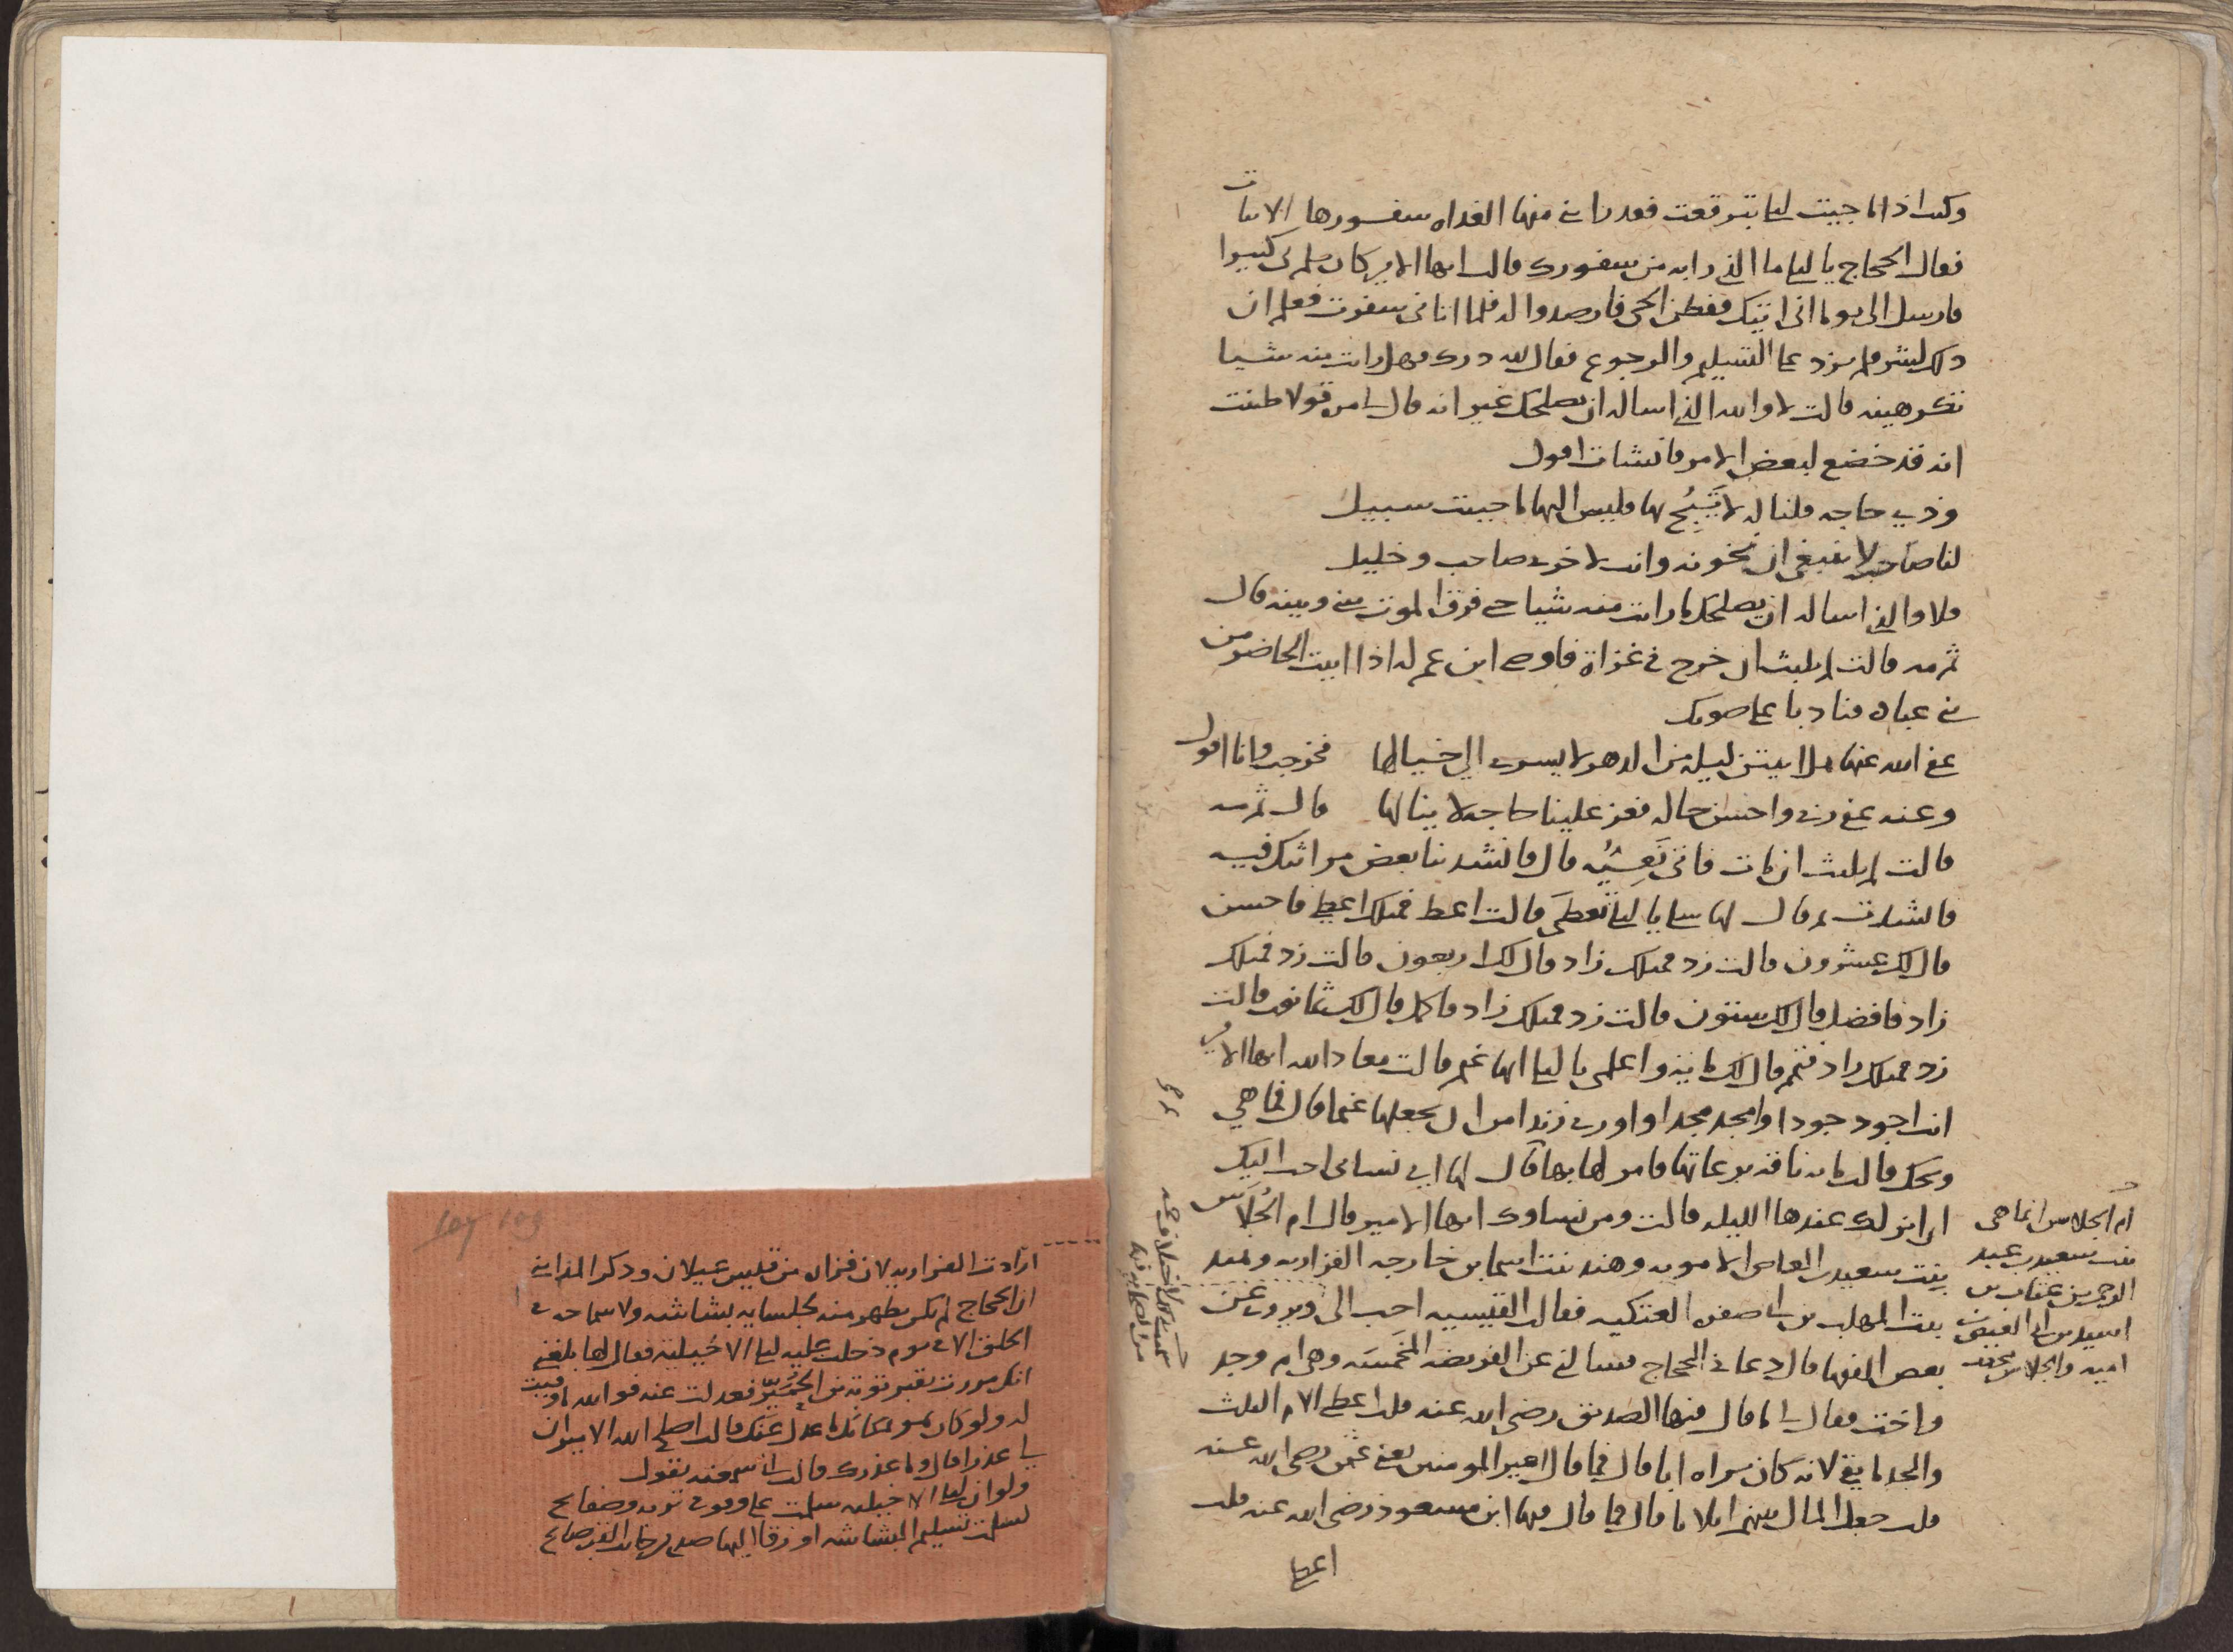 وكنت اذا ما جيت ليلى تبرقعت فقد رابني منها الغداه سفورها الابيات
فقال الحجاج يا ليلى ما الذي رابه من سفورك قالت ايها الامير كان يلم بي كثيرا
فارسل الى يوما اني اتيتك ففطن الحي فارصدوا له فلما اتاني سفرت فعلم ان
ذلك لشر فلم يزد على التسليم والرجوع فقال لله درك فهل رايت منه شيا
تكرهينه قالت لا والله الذي اساله ان يصلحك غير انه قال لي مره قولا ظننت
انه قد خضع لبعض الامر فانشات اقول
وذي حاجه قلنا له لا تَبُح بها فليس اليها ما حييت سبيل
لنا صاحب لا ينبغي ان نخونه وانت لاخرى صاحب وخليل
فلا والذي اساله ان يصلحك ما رايت منه شيا حتى فرق الموت بيني وبينه قال
ثم مه قالت لم يلبث ان خرج في غزاة فاوصى ابن عم له اذا اتيت الحاضر من
بني عباده فناد باعلى صوتك
عفى الله عنها هل ابيتن ليله من الدهر لا يسرى الي خيالها فخرجت وانا اقول
وعنه عفى ربي واحسن حاله فعز علينا حاجه لا ينالها قال ثم مه
قالت لم يلبث ان مات فاتى نَعِيُّه قال فانشدينا بعض مراثيك فيه
فانشدت ثم قال لها سلي يا ليلى تعطَي قالت اعط فمثلك اعطى فاحسن
قال لك عشرون قالت زد فمثلك زاد قال لك اربعون قالت زد فمثلك
زاد فافضل قال لك ستون قالت زد فمثلك زاد فاكمل قال لك ثمانون قالت
زد فمثلك زاد فتمم قال لك مايه واعلمي يا ليلى انها غنم قالت معاذ الله ايها الامير
انت اجود جودا وامجد مجدا واورى زندا من ان تجعلها غنما قال فما هي
ويحك قالت مايه ناقه برعاتها فامر لها بها قال لها اي نسائي احب اليك
ان انزلك عندها الليله قالت ومن نساوك ايها الامير قال ام الجُلاس
بنت سعيد بن العاص الامويه وهند بنت اسما بن خارجه الفزاريه وهند
بنت المهلب بن ابي صفره العتكيه فقال القيسيه احب الى ويروى عن
بعض الفقها قال دعا في الحجاج فسالني عن الفريضه المُخَمَّسَه وهي ام وجد
واخت فقال لي ما قال فيها الصديق رضي الله عنه قلت اعطى الام الثلث
والجد ما بقي لانه كان يراه ابا قال فما قال امير المومنين يعني عثمن رضي الله عنه
قلت جعل المال بينهم اثلاثا قال فما قال فيها ابن مسعود رضي الله عنه قلت
اعطى
ام الجلاس انما هي
بنت سعيد بن عبد
الرحمن بن عتاب بن
اسيد بن ابي العيص بن
اميه والجلاس مخفف
107 103
ارادت الفزاريه لان فزاره من قيس عيلان وذكر المدايني
ان الحجاج لم يكن يظهر منه لجلسايه بشاشه ولا سماحه في
الخلق الا في يوم دخلت عليه ليلى الاخيليه فقال لها بلغني
انك مررت بقبر توبه بن الحُمَيّر فعدلت عنه فوالله ما وفيت
له ولو كان هو بمكانك ما عدل عنك قالت اصلح الله الامير ان
لي عذرا قال وما عذرك قالت اني سمعته يقول
ولو ان ليلى الاخيليه سلمت علي وفوقي تربه وصفايح
لسلمت تسليم البشاشه او زقا اليها صدى من جانب القبر صايح